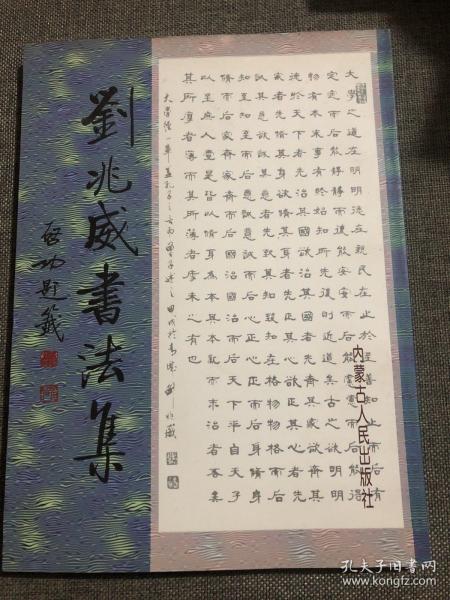 劉兆威書法集
啓功題籤
大學之道在明明德在親民在止於至善知止而后有
定定而后能靜靜而后能安安而后能慮慮而后能得
物有本末事有終始知所先後則近道矣古之欲明明
德於天下者先治其國欲治其國者先齊其家欲齊其
家者先脩其身欲脩其身者先正其心欲正其心者先
誠其意欲誠其意者先致其知致知在格物物格而后
知至知至而后意誠意誠而后心正心正而后身脩身
脩而后家齊家齊而后國治國治而后天下平自天子
以至庶人壹是皆以脩身為本其本亂而末治者否矣
其所厚者薄而其所薄者厚未之有也
大學經一章蓋孔子之言而曾子述之 甲戌於青城 劉兆威
内蒙古人民出版社
孔夫子旧书网
www.kongfz.com